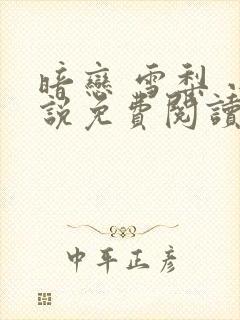 暗戀 雪梨 小
說免費閱讀
中平正彥